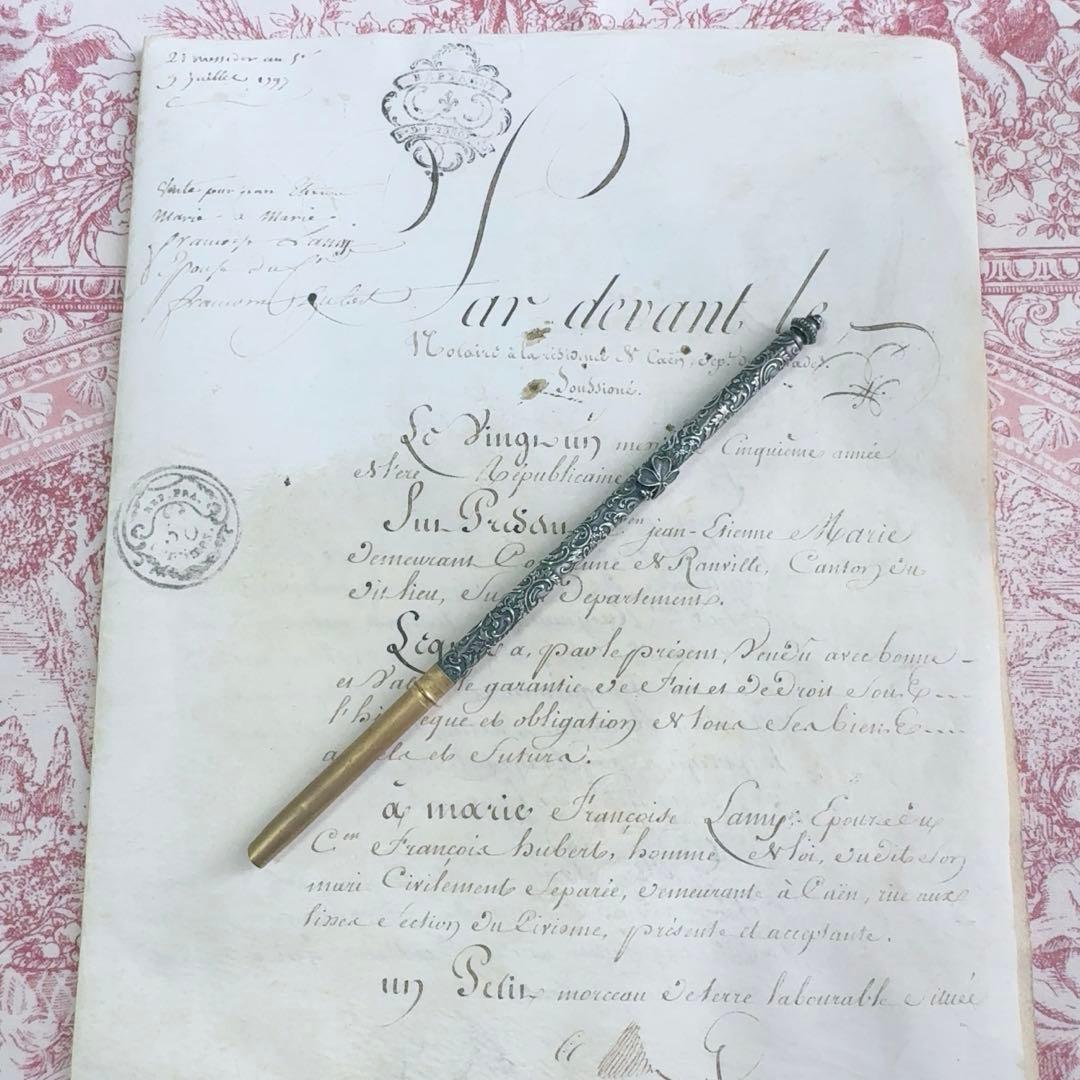 21 messidor an 5e
9 Juillet 1797
Vente pour jean Etienne
Marie à Marie
françoise Lamy
épouse du Cen
françois hubert
Par devant le
Notaire à la résidence de Caën, Dépt. du
Soussigné.
Le Vingt un Cinquième année
de l'ere Républicaine
Fut Présent Cen jean-Etienne Marie
demeurant Commune de Ranville, Canton du
dit lieu, Département.
Lequel a, par le présent, Vendu avec bonne
et Valable garantie de fait et de droit sous
l'hipotèque et obligation de tous ses biens
actuels et futurs.
à marie Françoise Lamy Epouse du
Cen François hubert, homme de loi, du dit son
mari Civilement Separée, demeurante à Caën, rue aux
lisses section du Civisme, présente et acceptante.
un Petit morceau de terre labourable située